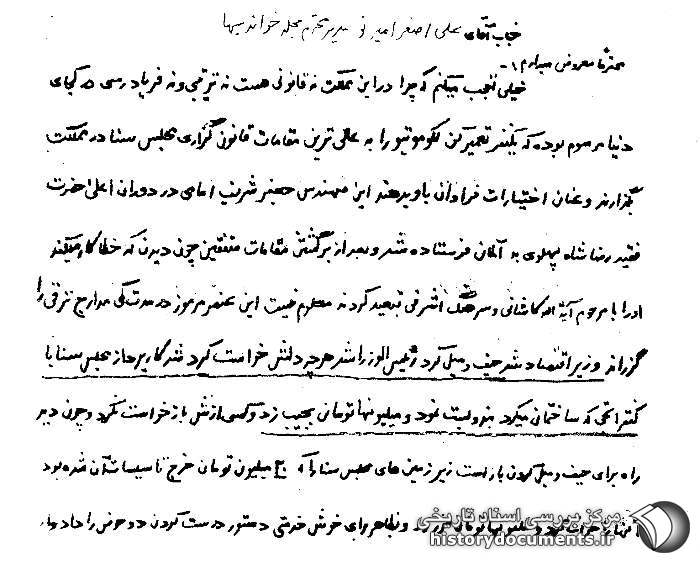 جناب آقای علی اصغر امیرانی مدیر محترم مجله خواندنیها
محترماً معروض میدارم :-
خیلی تعجب میکنم که چرا در این مملکت نه قانونی هست نه ترتیبی و نه فریادرسی در کجای
دنیا مرسوم بوده که یکنفر تعمیرکن لکوموتیو را به عالی ترین مقامات قانون گزاری مجلس سنا در مملکت
بگذارند و عنان اختیارات فراوان باو بدهند این مهندس جعفر شریف امامی در دوران اعلیحضرت
فقید رضا شاه پهلوی به آلمان فرستاده شد و بعد از برگشتن مقامات متفقین چون دیدن که خطا کار میکند
اورا با مرحوم آیة الله کاشانی و سرهنگ اشرفی تبعید کردند معلوم نیست این عنصر مرموز در مدت کمی مدارج ترقی را
گزراند وزیر اقتصاد شد حیف و میل کرد رئیس الوزرا شد هرچه دلش خواست کرد شد کار پرداز مجلس سنا با
کنتراتچی که ساختمان میکرد بند و بست نمود و میلیونها تومان بجیب زد و کسی ازش بازخواست نکرد و چون دید
راه برای حیف و میل کردن باز است زیر زمین های مجلس سنا را که ۳۰ میلیون تومان خرج تاسیساتشان شده بود
آنها را خراب و میلیونها تومان و بخاطر برای خوش خدمتی دستور درست کردن دو حوض را داد و از
مرکز بررسی اسناد تاریخی
historydocuments.ir